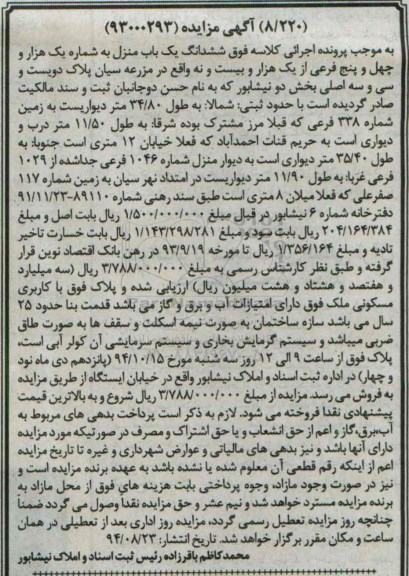 (۸/۲۲۰) آگهی مزایده (۹۳۰۰۰۲۹۳)
به موجب پرونده اجرائی کلاسه فوق ششدانگ یک باب منزل به شماره یک هزار و
چهل و پنج فرعی از یک هزار و بیست و نه واقع در مزرعه سیان پلاک دویست و
سی و سه اصلی بخش دو نیشابور که به نام حسن دوجانبان ثبت و سند مالکیت
صادر گردیده است با حدود ثبتی: شمالا: به طول ۳۴/۸۰ متر دیواریست به زمین
شماره ۳۳۸ فرعی که قبلا مرز مشترک بوده شرقا: به طول ۱۱/۵۰ متر درب و
دیواری است به حریم قنات احمدآباد که فعلا خیابان ۱۲ متری است جنوبا: به
طول ۳۵/۴۰ متر دیواری است به دیوار منزل شماره ۱۰۴۶ فرعی جداشده از ۱۰۲۹
فرعی غربا: به طول ۱۱/۹۰ متر دیواریست در امتداد نهر سیان به زمین شماره ۱۱۷
صفرعلی که فعلا میلان ۸ متری است طبق سند رهنی شماره ۸۹۱۱۰-۹۱/۱۱/۲۳
دفترخانه شماره ۶ نیشابور در قبال مبلغ ۱/۵۰۰/۰۰۰/۰۰۰ ریال بابت اصل و مبلغ
۲۰۴/۱۶۴/۳۸۴ ریال بابت سود و مبلغ ۱/۱۴۳/۲۹۸/۲۸۱ ریال بابت خسارت تاخیر
تادیه و مبلغ ۱/۳۵۶/۱۶۴ ریال تا مورخه ۹۳/۹/۱۹ در رهن بانک اقتصاد نوین قرار
گرفته و طبق نظر کارشناس رسمی به مبلغ ۳/۷۸۸/۰۰۰/۰۰۰ ریال (سه میلیارد
و هفتصد و هشتاد و هشت میلیون ریال) ارزیابی شده و پلاک فوق با کاربری
مسکونی ملک فوق دارای امتیازات آب و برق و گاز می باشد قدمت بنا حدود ۲۵
سال می باشد سازه ساختمان به صورت نیمه اسکلت و سقف ها به صورت طاق
ضربی میباشد و سیستم گرمایش بخاری و سیستم سرمایشی آن کولر آبی است،
پلاک فوق از ساعت ۹ الی ۱۲ روز سه شنبه مورخ ۹۴/۱۰/۱۵ (پانزدهم دی ماه نود
و چهار) در اداره ثبت اسناد و املاک نیشابور واقع در خیابان ایستگاه از طریق مزایده
به فروش می رسد. مزایده از مبلغ ۳/۷۸۸/۰۰۰/۰۰۰ ریال شروع و به بالاترین قیمت
پیشنهادی نقدا فروخته می شود. لازم به ذکر است پرداخت بدهی های مربوط به
آب،برق،گاز و اعم از حق انشعاب و یا حق اشتراک و مصرف در صورتیکه مورد مزایده
دارای آنها باشد و نیز بدهی های مالیاتی و عوارض شهرداری و غیره تا تاریخ مزایده
اعم از اینکه رقم قطعی آن معلوم شده یا نشده باشد به عهده برنده مزایده است و
نیز در صورت وجود مازاد، وجوه پرداختی بابت هزینه های فوق از محل مازاد به
برنده مزایده مسترد خواهد شد و نیم عشر و حق مزایده نقدا وصول می گردد ضمناً
چنانچه روز مزایده تعطیل رسمی گردد، مزایده روز اداری بعد از تعطیلی در همان
ساعت و مکان مقرر برگزار خواهد شد. تاریخ انتشار: ۹۴/۰۸/۲۳
محمد کاظم باقرزاده رئیس ثبت اسناد و املاک نیشابور